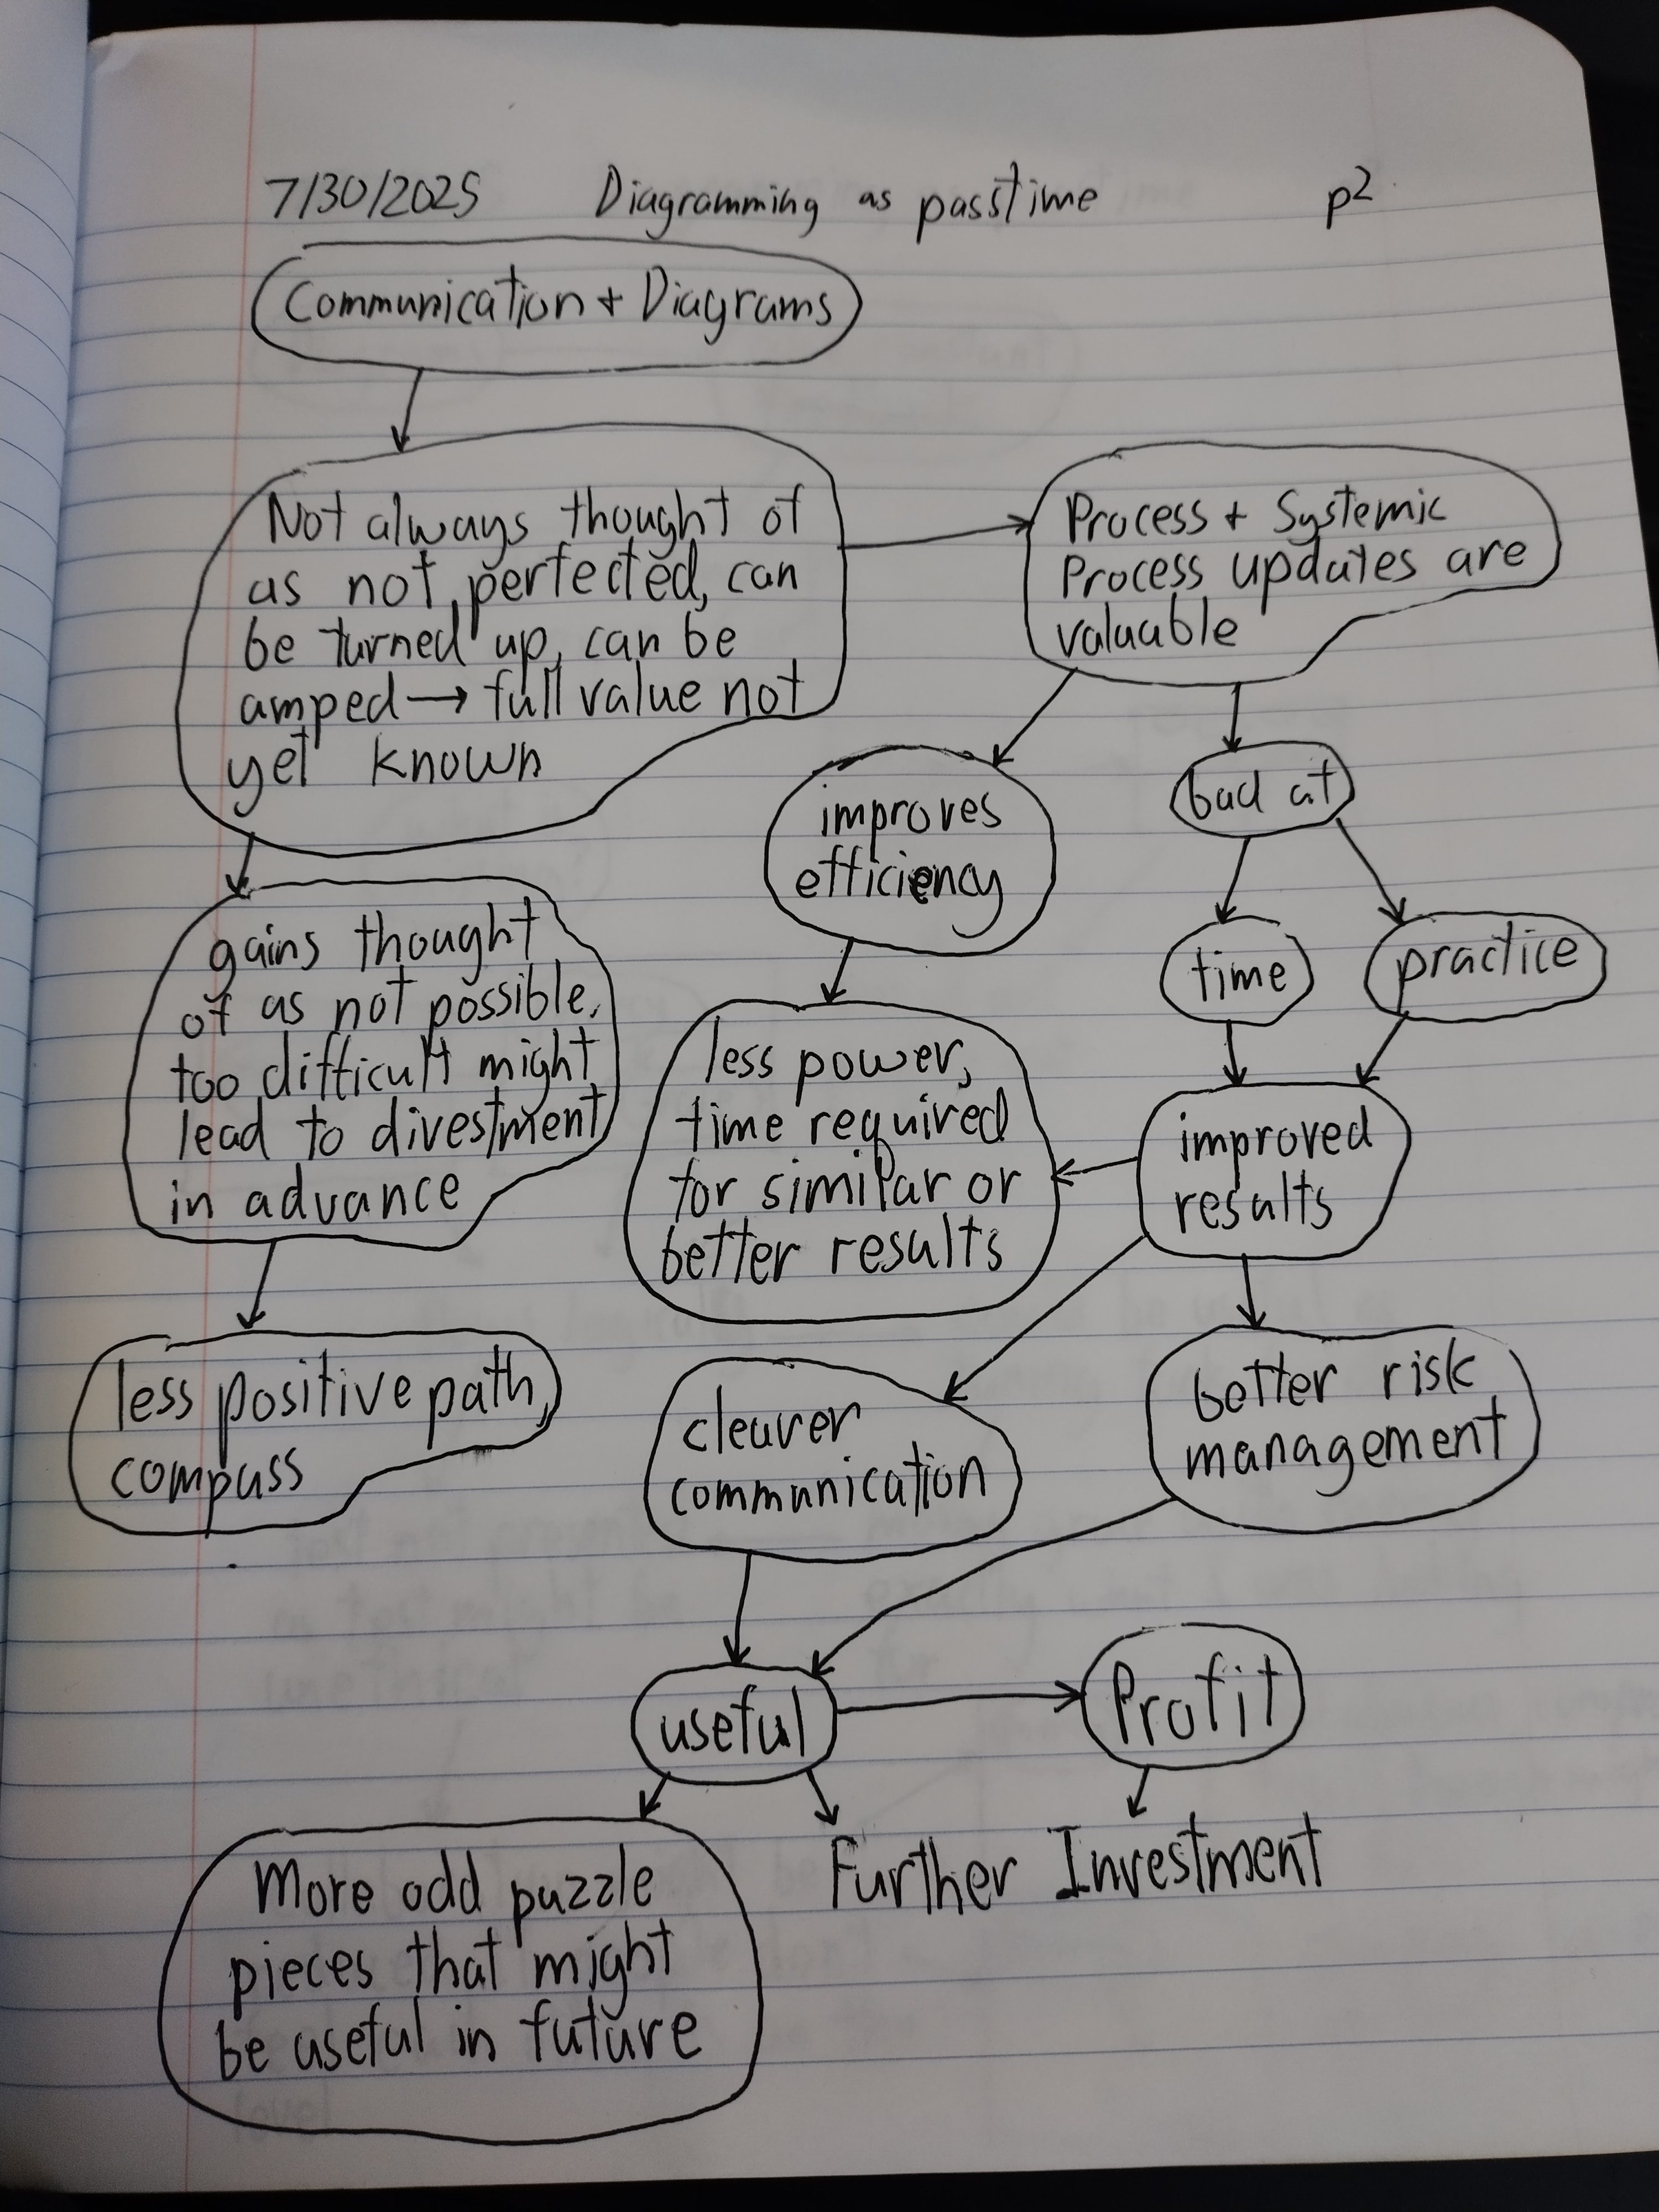 7/30/2025 Diagramming as passtime p2
Communication + Diagrams
Not always thought of
as not perfected, can
be turned up, can be
amped → full value not
yet known
Process + Systemic
Process updates are
valuable
improves
efficiency
bad at
time
practice
gains thought
of as not possible,
too difficult might
lead to divestment
in advance
less power,
time required
for similar or
better results
improved
results
less positive path,
compass
clearer
communication
better risk
management
useful
Profit
More odd puzzle
pieces that might
be useful in future
Further Investment